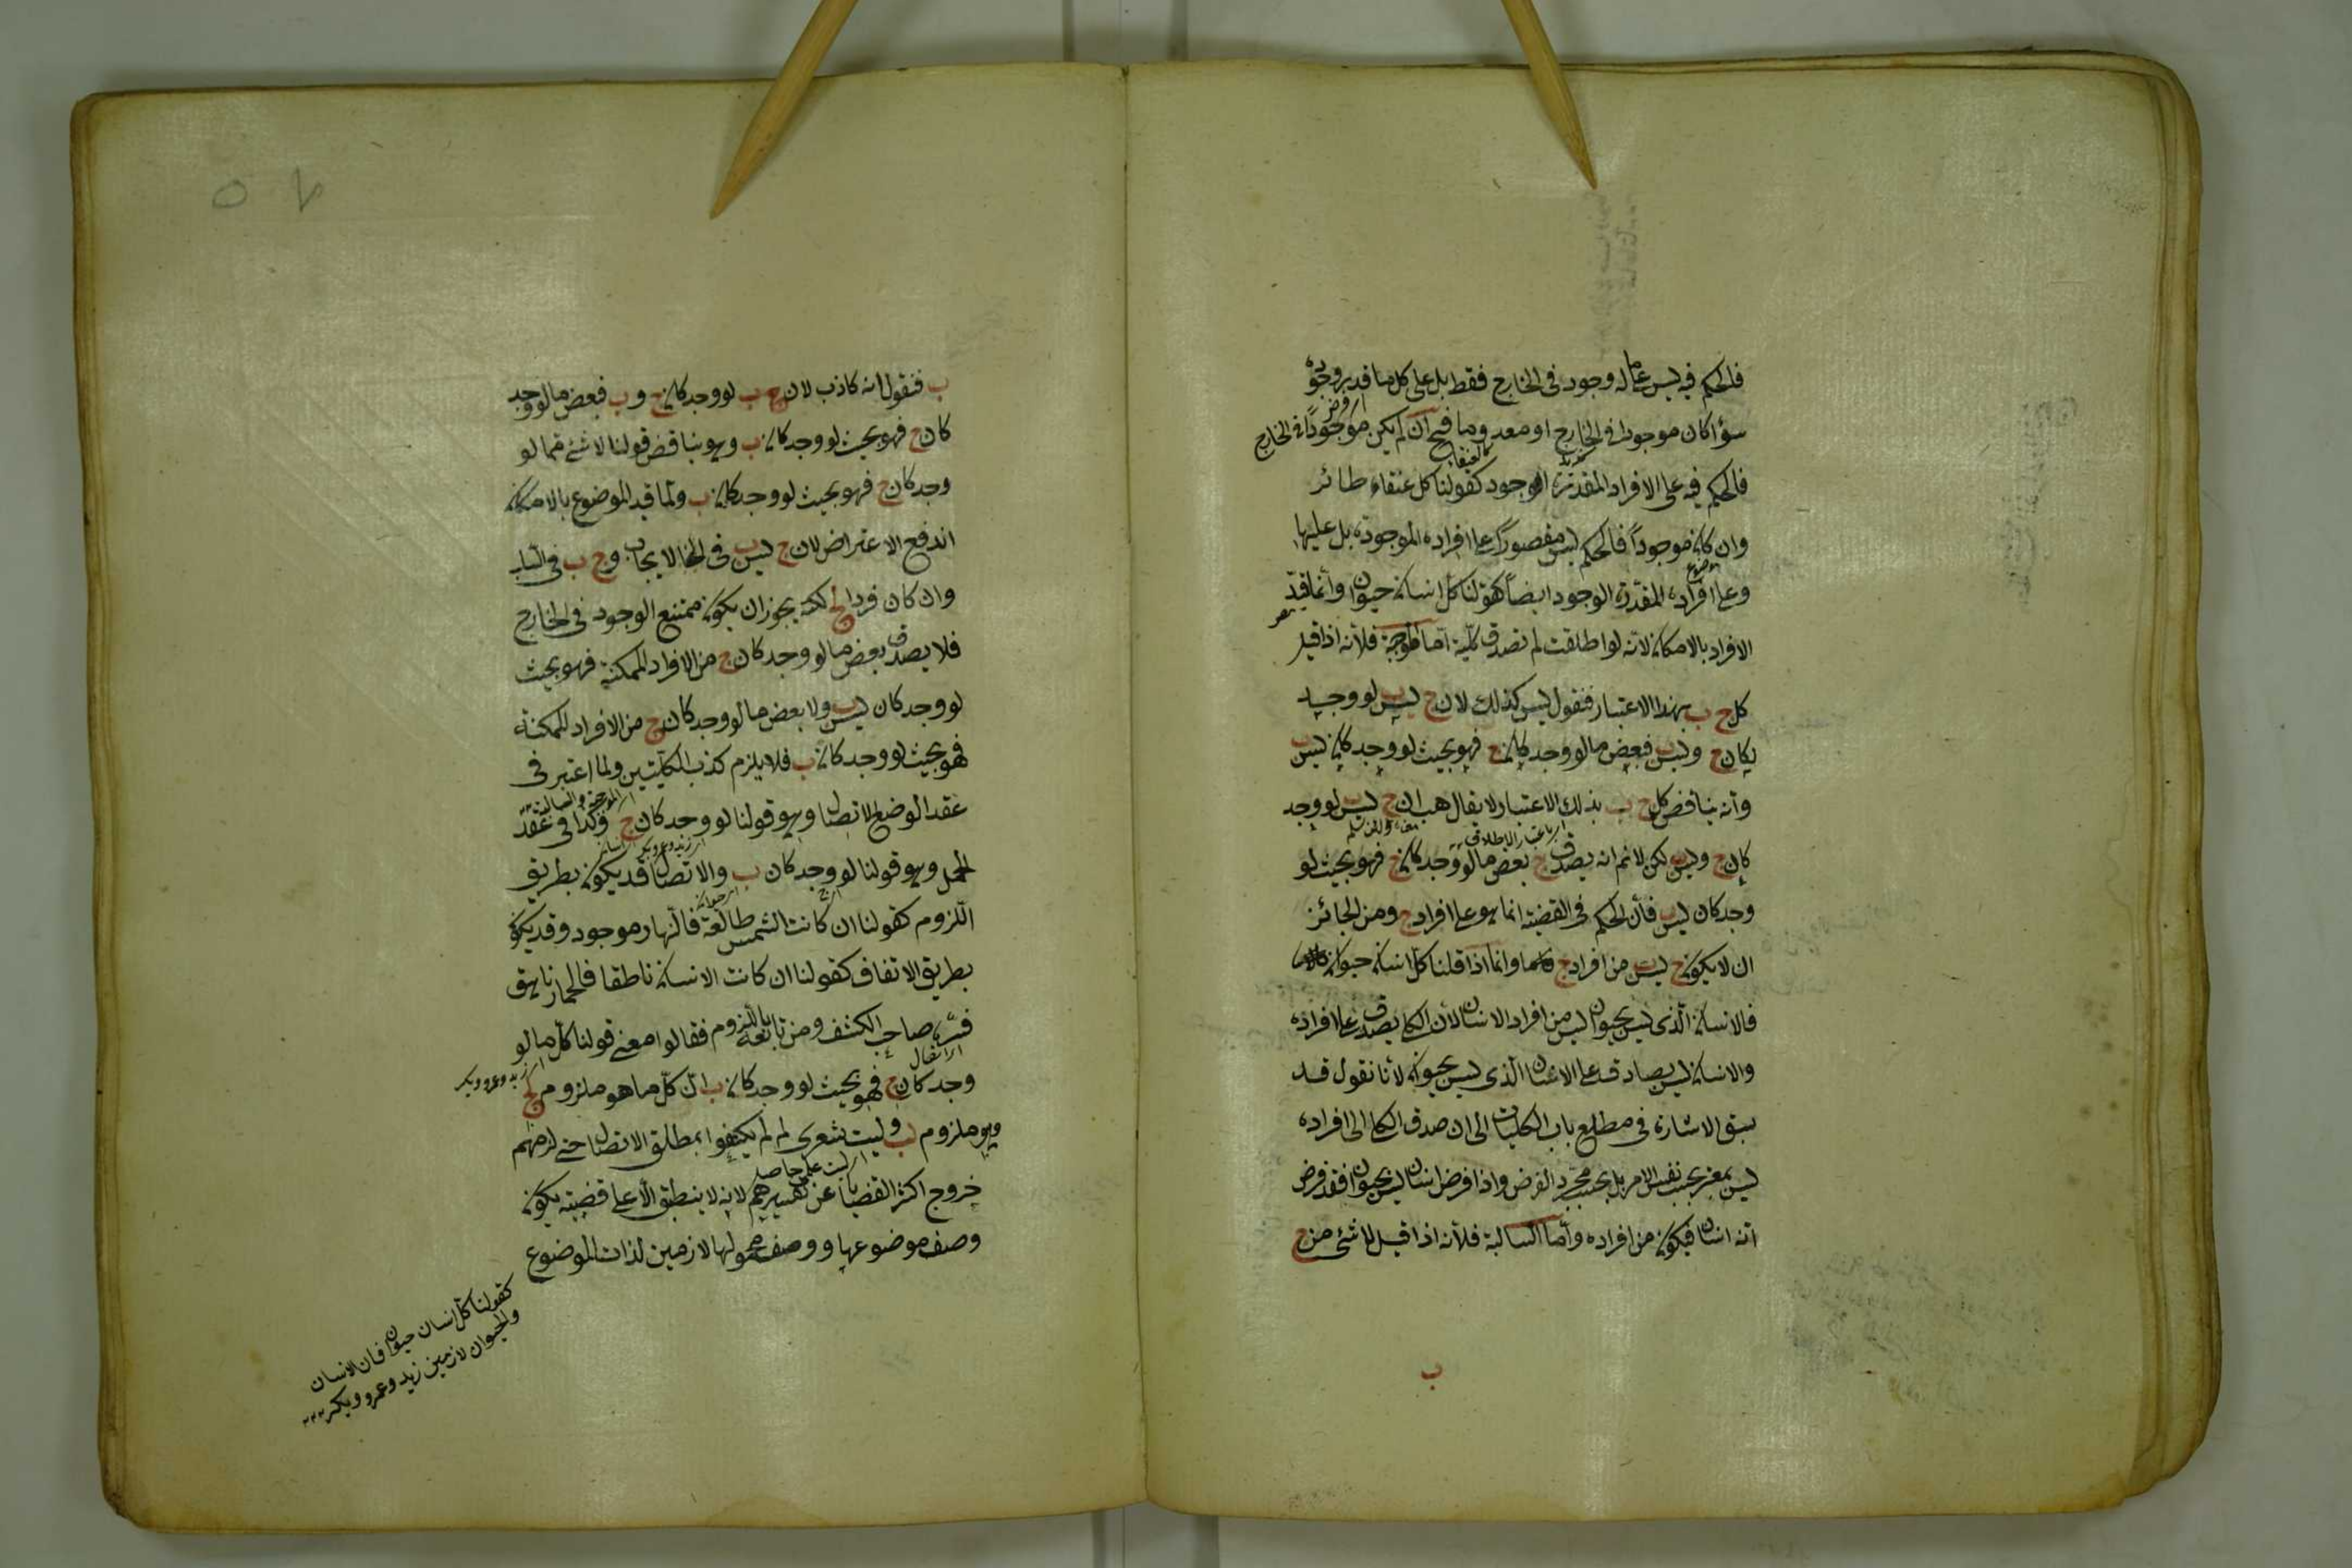 فالحكم فيه ليس على ما له وجود فى الخارج فقط بل على كل ما قدر وجوده
سواء كان موجودا فى الخارج او معدوما فح ان لم يكن موجودًا فى الخارج
فالحكم فيه على الافراد المقدرة الوجود كقولنا كل عنقاء طائر
وان كان موجوداً فالحكم ليس مقصوراً على افراده الموجودة بل عليها
وعلى افراده المقدّرة الوجود ايضاً كقولنا كل انسان حيوان وانما قيد
الافراد بالامكان لانه لو اطلقت لم تصدق كلية اما الموجبة فلانه اذا قيل
كل ج ب بهذا الاعتبار فنقول ليس كذلك لان ج ليس ب لو وجد
كان ج وليس ب فبعض ما لو وجد كان ج فهو بحيث لو وجد كان ليس ب
وانه يناقض كل ج ب بذلك الاعتبار لا يقال هب ان ج ليس ب لو وجد
باعتبار الاطلاق
كان ج وليس ب لكن لانم انه يصدق ح بعض ما لو وجد كان ج فهو بحيث لو
وجد كان ليس ب فان الحكم فى القضية انما هو على افراد ج ومن الجائز
ان لا يكون ج ليس ب من افراد ج وانما اذا قلنا كل انسان حيوان
فالانسان الذى ليس بحيوان ليس من افراد الانسان لان الكلى يصدق على افراده
والانسان ليس بصادق على الانسان الذى ليس بحيوان لانا نقول قد
سبق الاشارة فى مطلع باب الكليات الى ان صدق الكلى الى افراده
ليس بمعتبر بحسب نفس الامر بل بحسب مجرد الفرض واذا فرض انسان ليس بحيوان فقد فرض
انه انسان فيكون من افراده واما السالبة فلانه اذا قيل لا شئ من ج
ب
ب فنقول انه كاذب لان ج ب لو وجد كان ج و ب فبعض ما لو وجد
كان ج فهو بحيث لو وجد كان ب وهو يناقض قولنا لا شئ مما لو
وجد كان ج فهو بحيث لو وجد كان ب ولما قيد الموضوع بالامكان
اندفع الاعتراض لان ج ليس ب فى الايجاب و ج ب فى السلب
وان كان فردا لج لكنه يجوز ان يكون ممتنع الوجود فى الخارج
فلا يصدق بعض ما لو وجد كان ج من الافراد الممكنة فهو بحيث
لو وجد كان ليس ب ولا بعض ما لو وجد كان ج من الافراد الممكنة
فهو بحيث لو وجد كان ب فلا يلزم كذب الكليتين ولما اعتبر فى
عقد الوضع الاتصال وهو قولنا لو وجد كان ج وكذا فى عقد
الحمل وهو قولنا لو وجد كان ب والاتصال قد يكون بطريق
اللزوم كقولنا ان كانت الشمس طالعة فالنهار موجود وقد يكون
بطريق الاتفاق كقولنا ان كانت الانسان ناطقا فالحمار ناهق
فسره صاحب الكشف ومن تابعه باللزوم فقالوا معنى قولنا كل ما لو
وجد كان ج فهو بحيث لو وجد كان ب ان كل ما هو ملزوم لج
وهو ملزوم لب وليت شعرى لم لم يكتفوا بمطلق الاتصال حتى لزمهم
ليت علمى حاصل
خروج اكثر القضايا عن تفسيرهم لانه لا ينطبق الا على قضية يكون
وصف موضوعها ووصف محمولها لازمين لذات الموضوع
كقولنا كل انسان حيوان فان الانسان
والحيوان لازمين زيد وعمرو وبكر